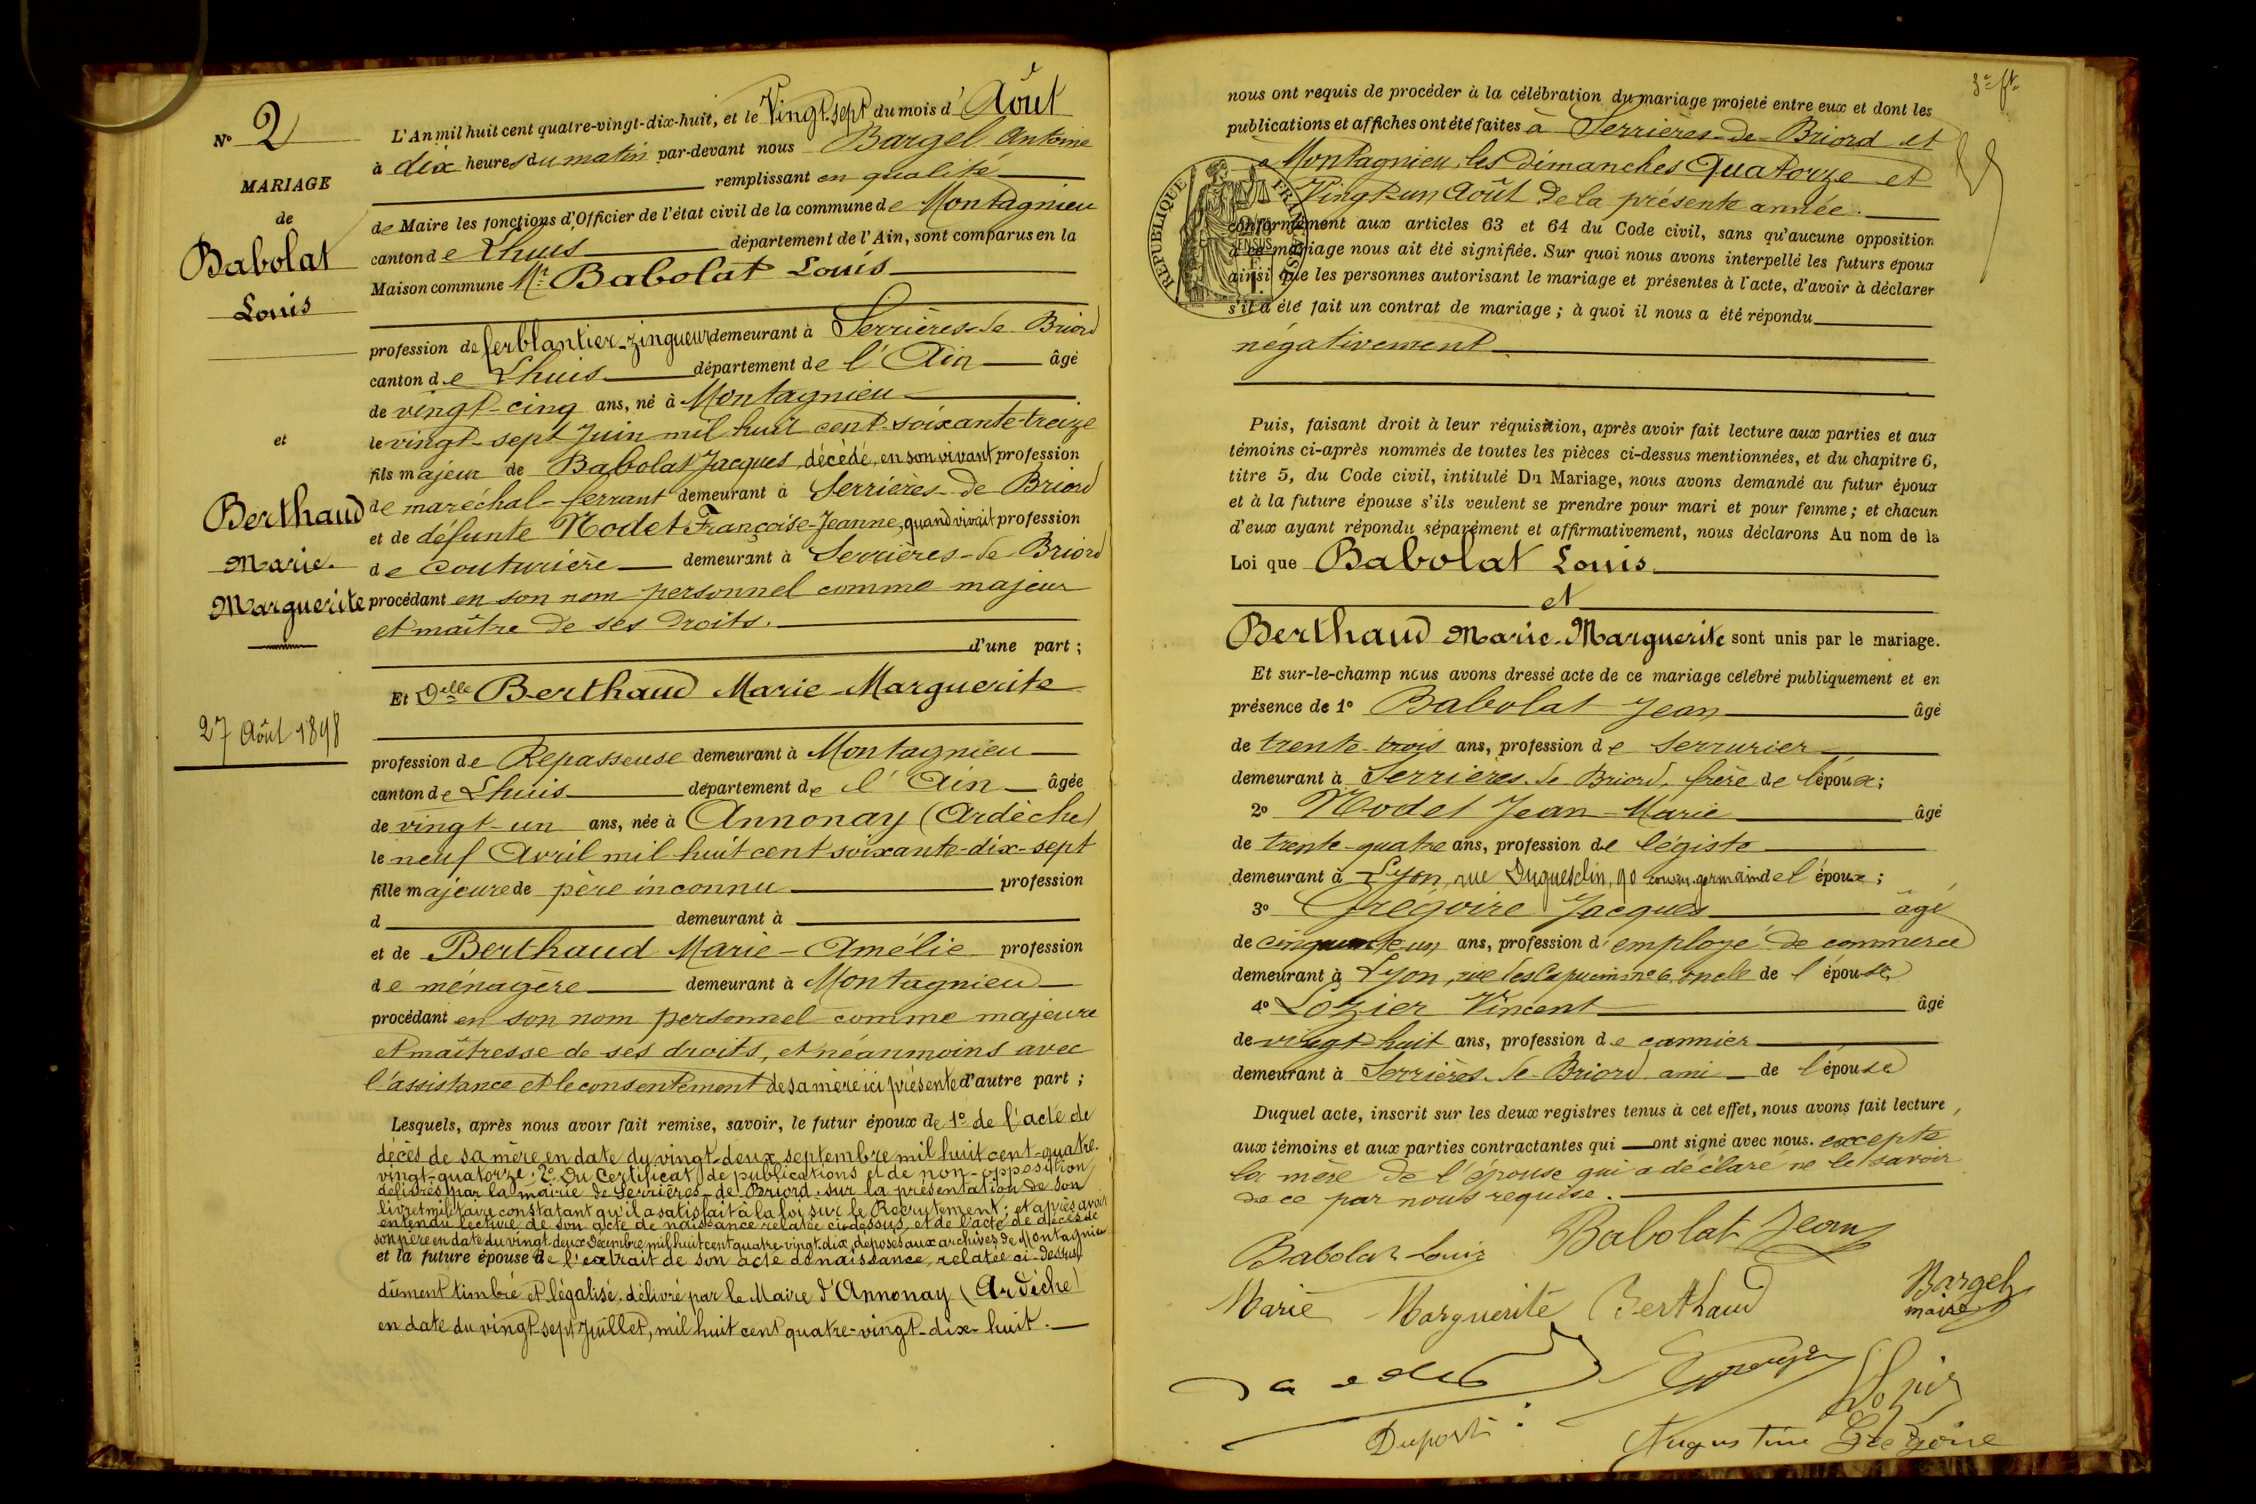 Nº 2
MARIAGE
de
Babolat
Louis
et
Berthaud
Marie
Marguerite
27 Août 1898
L'An mil huit cent quatre-vingt-dix-huit, et le Vingt-sept du mois d'Août
à dix heures du matin par-devant nous Bargel Antoine
remplissant en qualité
de Maire les fonctions d'Officier de l'état civil de la commune de Montagnieu
canton de Lhuis département de l'Ain, sont comparus en la
Maison commune Mr. Babolat Louis
profession de ferblantier-zingueur demeurant à Serrières-de-Briord
canton de Lhuis département de l'Ain âgé
de vingt-cinq ans, né à Montagnieu
le vingt-sept Juin mil huit cent soixante-treize
fils majeur de Babolat Jacques, décédé, en son vivant profession
de maréchal-ferrant demeurant à Serrières-de-Briord
et de défunte Nodet Françoise-Jeanne, quand vivait profession
de couturière demeurant à Serrières-de-Briord
procédant en son nom personnel comme majeur
et maître de ses droits.
d'une part ;
Et Delle Berthaud Marie-Marguerite
profession de Repasseuse demeurant à Montagnieu
canton de Lhuis département de l'Ain âgée
de vingt-un ans, née à Annonay (Ardèche)
le neuf Avril mil huit cent soixante-dix-sept
fille majeure de père inconnu profession
d demeurant à
et de Berthaud Marie-Amélie profession
de ménagère demeurant à Montagnieu
procédant en son nom personnel comme majeure
et maîtresse de ses droits, et néanmoins avec
l'assistance et le consentement de sa mère ici présente d'autre part ;
Lesquels, après nous avoir fait remise, savoir, le futur époux de 1º de l'acte de
décès de sa mère en date du vingt-deux septembre mil huit cent-quatre-
vingt-quatorze ; 2º Du Certificat de publications et de non-opposition
délivrés par la mairie de Serrières-de-Briord, sur la présentation de son
livret militaire constatant qu'il a satisfait à la loi sur le Recrutement ; et après avoir
entendu lecture de son acte de naissance relatée ci-dessus, et de l'acte de décès de
son père en date du vingt-deux Décembre mil huit cent quatre-vingt-dix, déposés aux archives de Montagnieu
et la future épouse de l'extrait de son acte de naissance, relatée ci-dessus,
dûment timbré et légalisé, délivré par le Maire d'Annonay (Ardèche)
en date du vingt-sept Juillet, mil huit cent quatre-vingt-dix-huit.
nous ont requis de procéder à la célébration du mariage projeté entre eux et dont les
publications et affiches ont été faites à Serrières-de-Briord et
à Montagnieu, les Dimanches Quatorze et
Vingt-un Août de la présente année.
conformément aux articles 63 et 64 du Code civil, sans qu'aucune opposition
à ce mariage nous ait été signifiée. Sur quoi nous avons interpellé les futurs époux
ainsi que les personnes autorisant le mariage et présentes à l'acte, d'avoir à déclarer
s'il a été fait un contrat de mariage ; à quoi il nous a été répondu
négativement
REPUBLIQUE FRANÇAISE
Puis, faisant droit à leur réquisition, après avoir fait lecture aux parties et aux
témoins ci-après nommés de toutes les pièces ci-dessus mentionnées, et du chapitre 6,
titre 5, du Code civil, intitulé Du Mariage, nous avons demandé au futur époux
et à la future épouse s'ils veulent se prendre pour mari et pour femme ; et chacun
d'eux ayant répondu séparément et affirmativement, nous déclarons Au nom de la
Loi que Babolat Louis
et
Berthaud Marie-Marguerite sont unis par le mariage.
Et sur-le-champ nous avons dressé acte de ce mariage célébré publiquement et en
présence de 1º Babolat Jean âgé
de trente-trois ans, profession de serrurier
demeurant à Serrières-de-Briord, frère de l'époux ;
2º Nodet Jean-Marie âgé
de trente-quatre ans, profession de légiste
demeurant à Lyon, rue Duguesclin, 90 cousin-germain de l'époux ;
3º Grégoire Jacques âgé
de cinquante-un ans, profession d'employé de commerce
demeurant à Lyon, rue des Capucins nº 6, oncle de l'épouse
4º Lozier Vincent âgé
de vingt-huit ans, profession de cannier
demeurant à Serrières-de-Briord ami de l'épouse
Duquel acte, inscrit sur les deux registres tenus à cet effet, nous avons fait lecture
aux témoins et aux parties contractantes qui ont signé avec nous. excepté
la mère de l'épouse qui a déclaré ne le savoir
de ce par nous requise.
Babolat Louis Babolat Jean
Marie Marguerite Berthaud Bargel
maire
Duport Augustine Grégoire